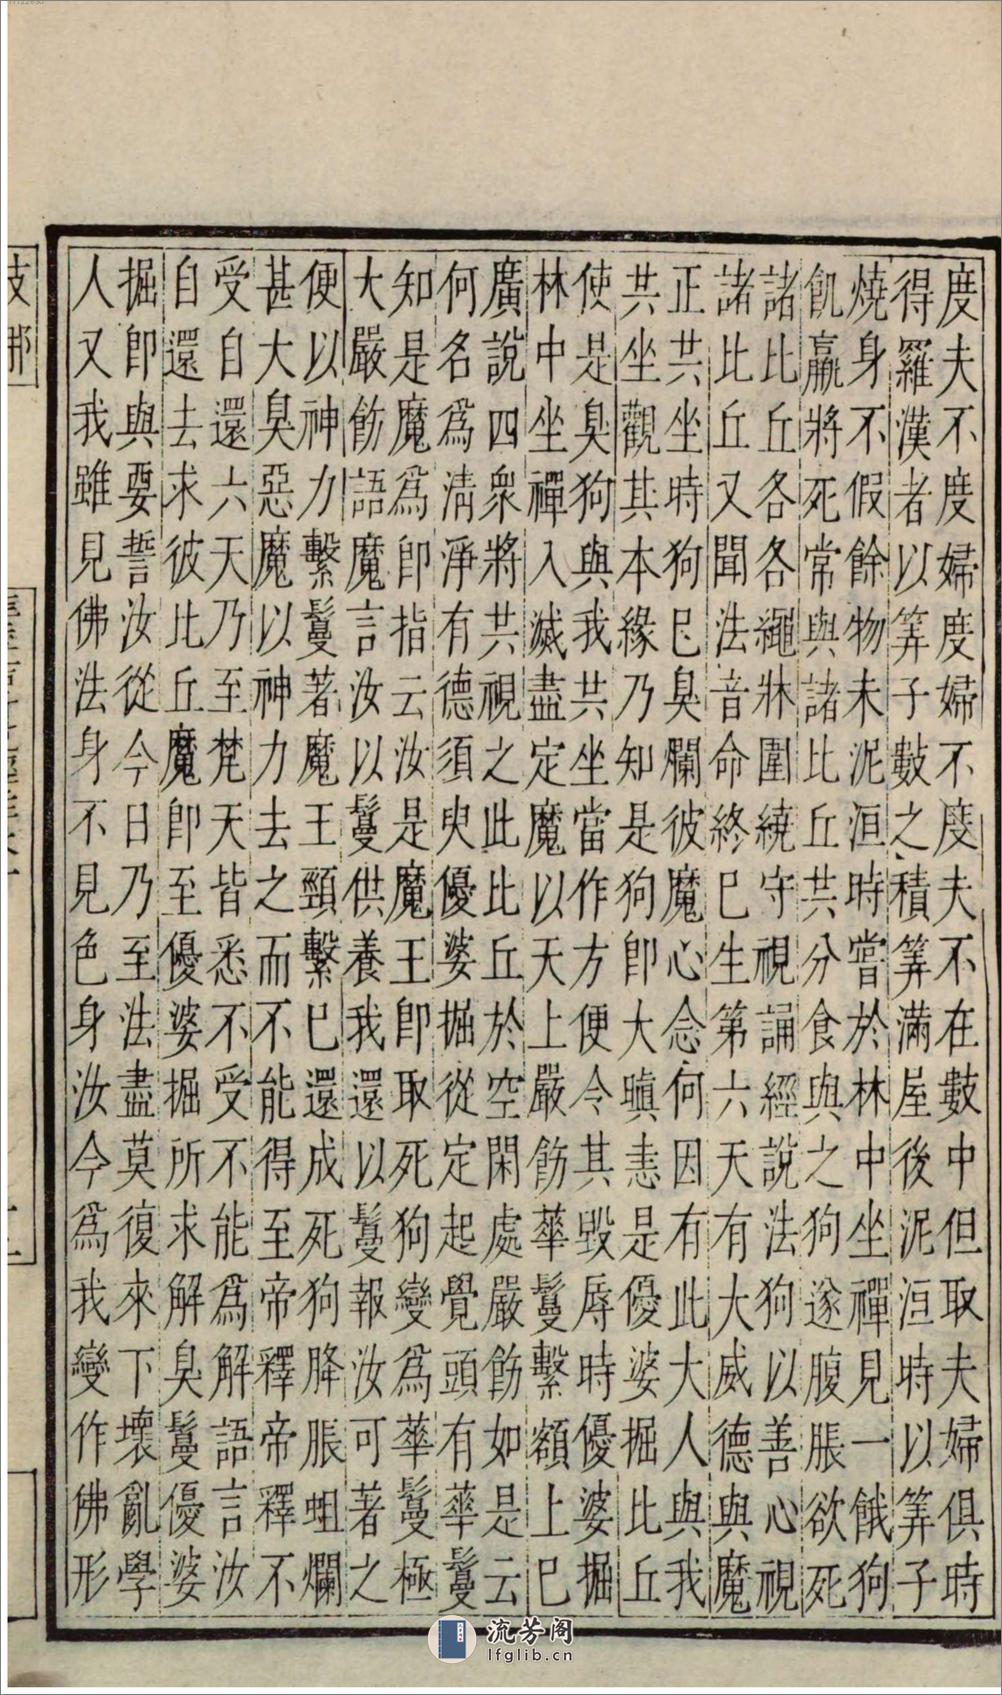 度夫不度婦度婦不度夫不在數中但取夫婦俱時
得羅漢者以筭子數之積筭滿屋後泥洹時以筭子
燒身不假餘物未泥洹時嘗於林中坐禪見一餓狗
飢羸將死常與諸比丘共分食與之狗遂腹脹欲死
諸比丘各各繩牀圍繞守視誦經說法狗以善心視
諸比丘又聞法音命終已生第六天有大威德與魔
正共坐時狗已臭爛彼魔心念何因有此大人與我
共坐觀其本緣乃知是狗即大瞋恚是優婆掘比丘
使是臭狗與我共坐當作方便令其毀辱時優婆掘
林中坐禪入滅盡定魔以天上嚴飭華鬘繫額上已
廣說四眾將共視之此比丘於空閑處嚴飭如是云
何名為清淨有德須臾優婆掘從定起覺頭有華鬘
知是魔為即指云汝是魔王即取死狗變為華鬘極
大嚴飭語魔言汝以鬘供養我還以鬘報汝可著之
便以神力繫鬘著魔王頸繫已還成死狗胮脹蛆爛
甚大臭惡魔以神力去之而不能得至帝釋帝釋不
受自還六天乃至梵天皆悉不受不能為解語言汝
自還去求彼比丘魔即至優婆掘所求解臭鬘優婆
掘即與要誓汝從今日乃至法盡莫復來下壞亂學
人又我雖見佛法身不見色身汝今為我變作佛形
支那
流芳阁
lfglib.cn